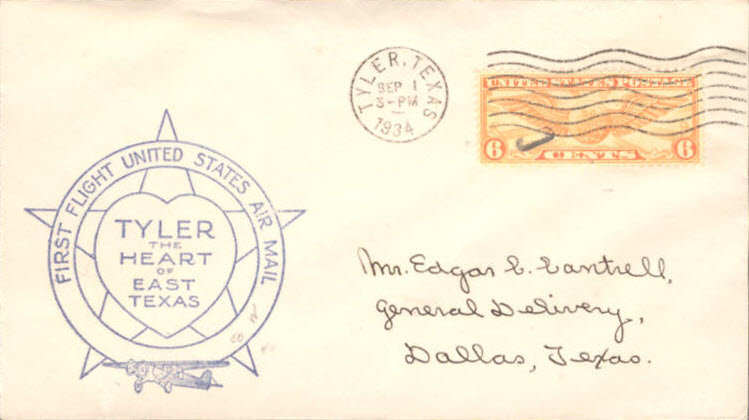 TYLER, TEXAS
SEP 1
3-PM
1934
UNITED STATES POSTAGE
6 CENTS 6
FIRST FLIGHT UNITED STATES AIR MAIL
TYLER
THE
HEART
OF
EAST
TEXAS
Mr. Edgar C. Cantrell,
General Delivery,
Dallas, Texas.